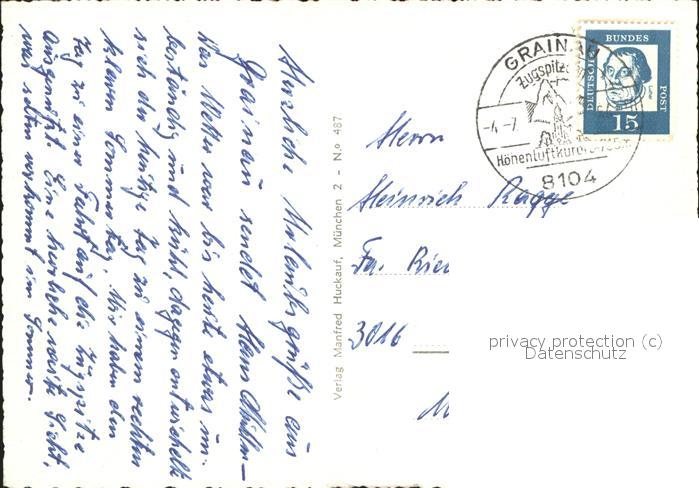 Herzliche Urlaubsgrüße aus
Grainau sendet Hans
Das Wetter war bis heute etwas un-
beständig und kühl, dagegen entwickelt
sich der heutige Tag zu einem rechten
klaren Sommertag. Wir haben den
Tag zu einer Fahrt auf die Zugspitze
ausgenützt. Eine herrliche weite Sicht,
was selten vorkommt im Sommer.
Verlag Manfred Huckauf, München 2 - N.o 487
GRAINAU
Zugspitz
-4.-7.
Höhenluftkurort
8104
DEUTSCHE
BUNDES
POST
15
Herrn
Heinrich Ragge
Fa.
3016
privacy protection (c)
Datenschutz